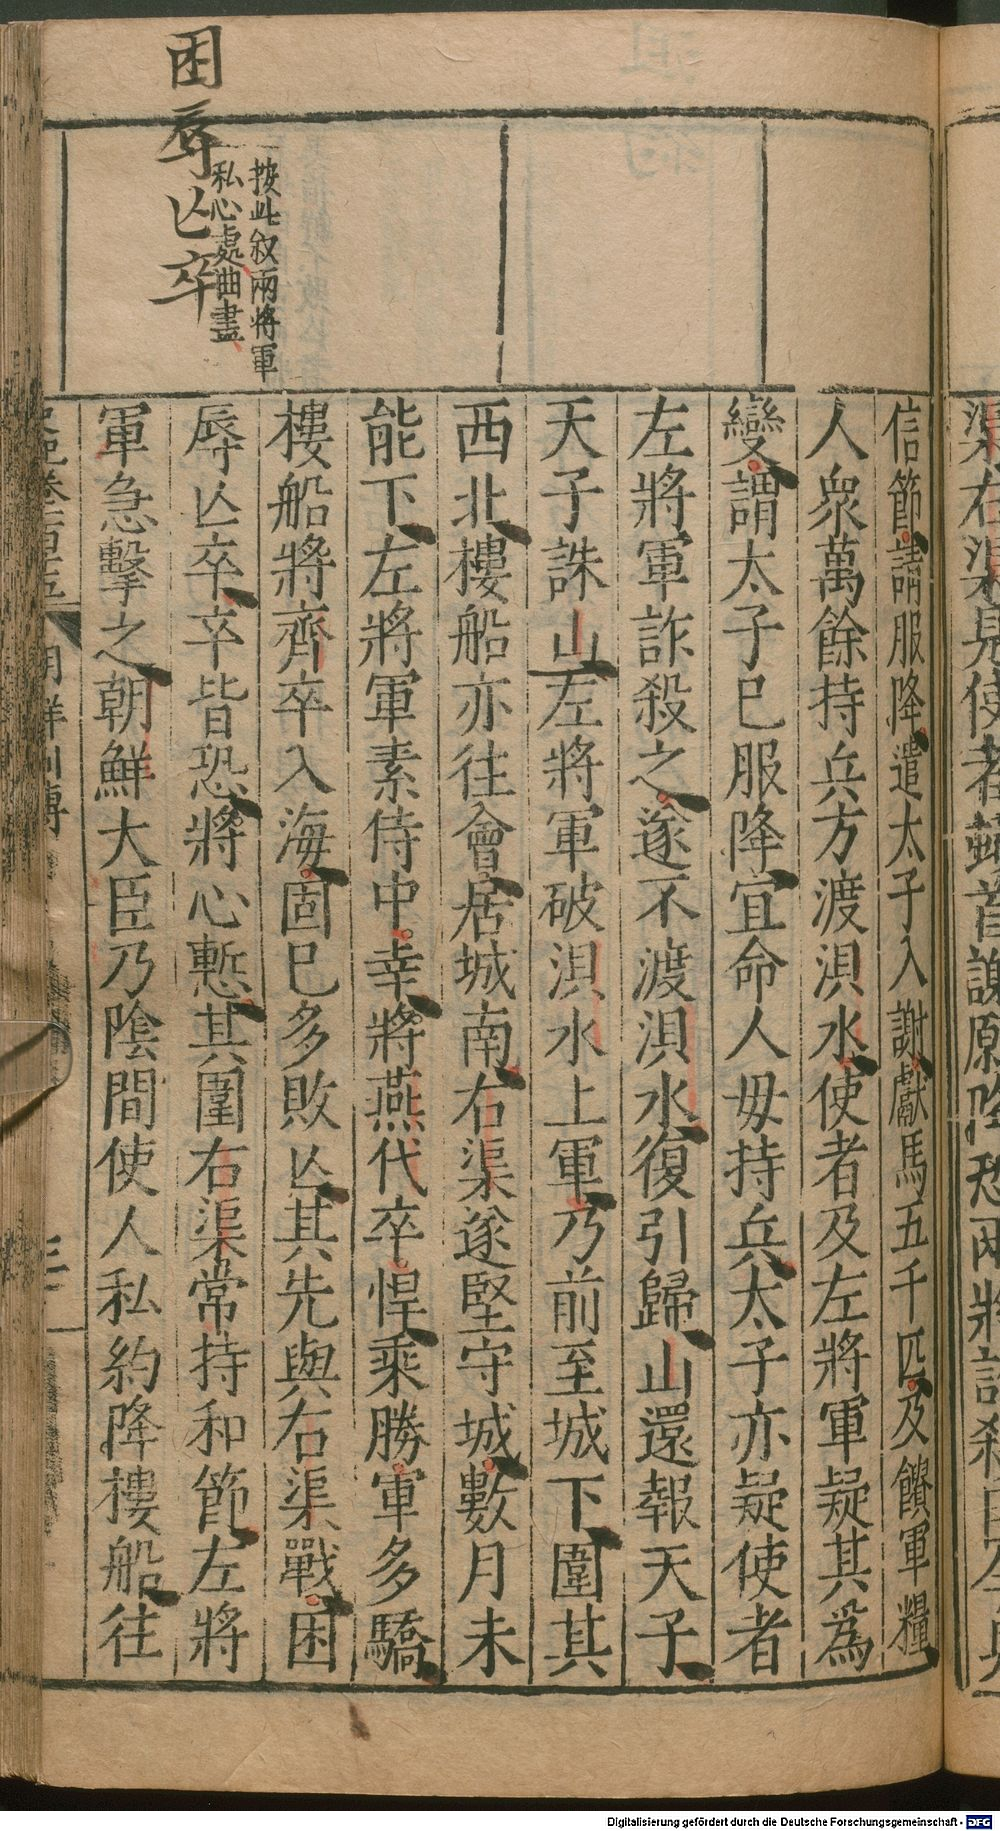 困辱亾卒
按此叙兩將軍
私心處曲盡
信節請服降遣太子入謝獻馬五千匹及饋軍糧
人衆萬餘持兵方渡浿水使者及左將軍疑其爲
變謂太子巳服降宜命人毋持兵太子亦疑使者
左將軍詐殺之遂不渡浿水復引歸山還報天子
天子誅山左將軍破浿水上軍乃前至城下圍其
西北樓船亦往會居城南右渠遂堅守城數月未
能下左將軍素侍中幸將燕代卒悍乘勝軍多驕
樓船將齊卒入海固巳多敗亾其先與右渠戰困
辱亾卒卒皆恐將心慙其圍右渠常持和節左將
軍急擊之朝鮮大臣乃陰間使人私約降樓船往
朝鮮列傳
三
Digitalisierung gefördert durch die Deutsche Forschungsgemeinschaft - DFG